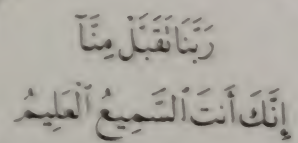 رَبَّنَا تَقَبَّلْ مِنَّآ
إِنَّكَ أَنتَ ٱلسَّمِيعُ ٱلْعَلِيمُ